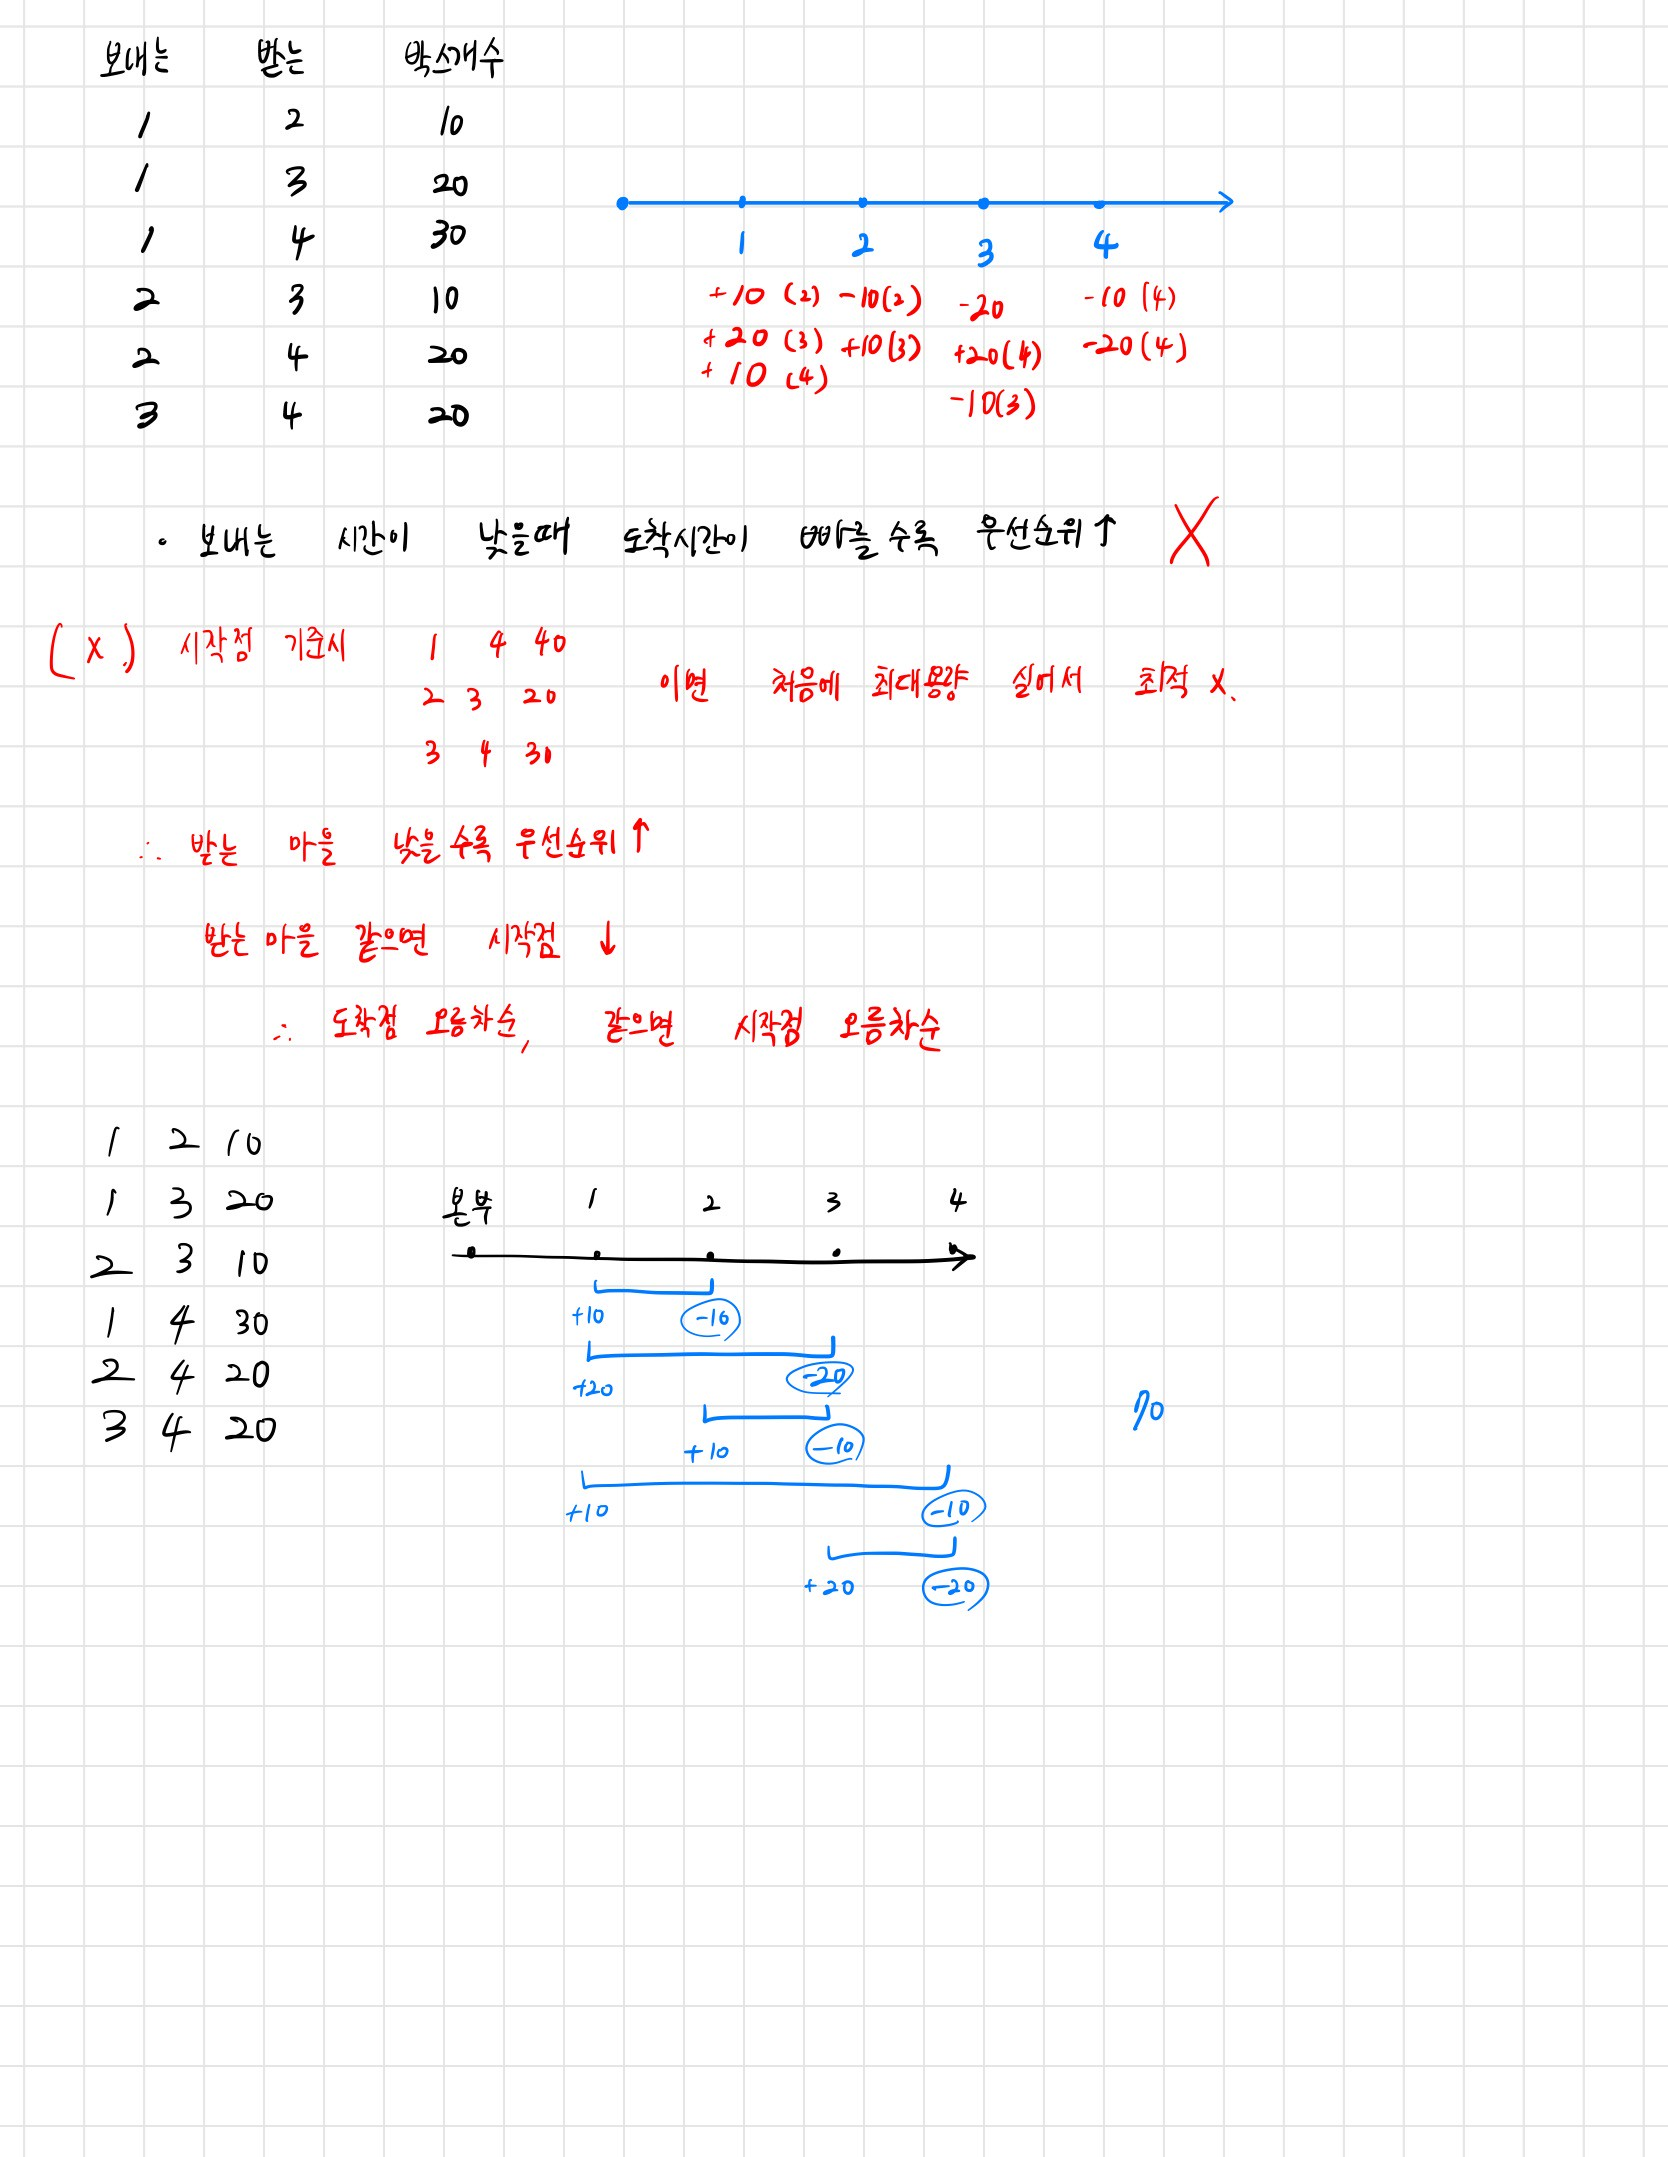 보내는 받는 박스개수
1 2 10
1 3 20
1 4 30
2 3 10
2 4 20
3 4 20
1 2 3 4
+10 (2) -10(2) -20 -10 (4)
+20 (3) +10(3) +20(4) -20(4)
+10 (4) -10(3)
• 보내는 시간이 낮을때 도착시간이 빠를 수록 우선순위↑ X
(X) 시작점 기준시 1 4 40
2 3 20 이면 처음에 최대용량 실어서 최적 x.
3 4 30
∴ 받는 마을 낮을수록 우선순위↑
받는마을 같으면 시작점 ↓
∴ 도착점 오름차순, 같으면 시작점 오름차순
1 2 10
1 3 20
2 3 10
1 4 30
2 4 20
3 4 20
본부 1 2 3 4
+10 -10
+20 -20
+10 -10
+10 -10
+20 -20
70